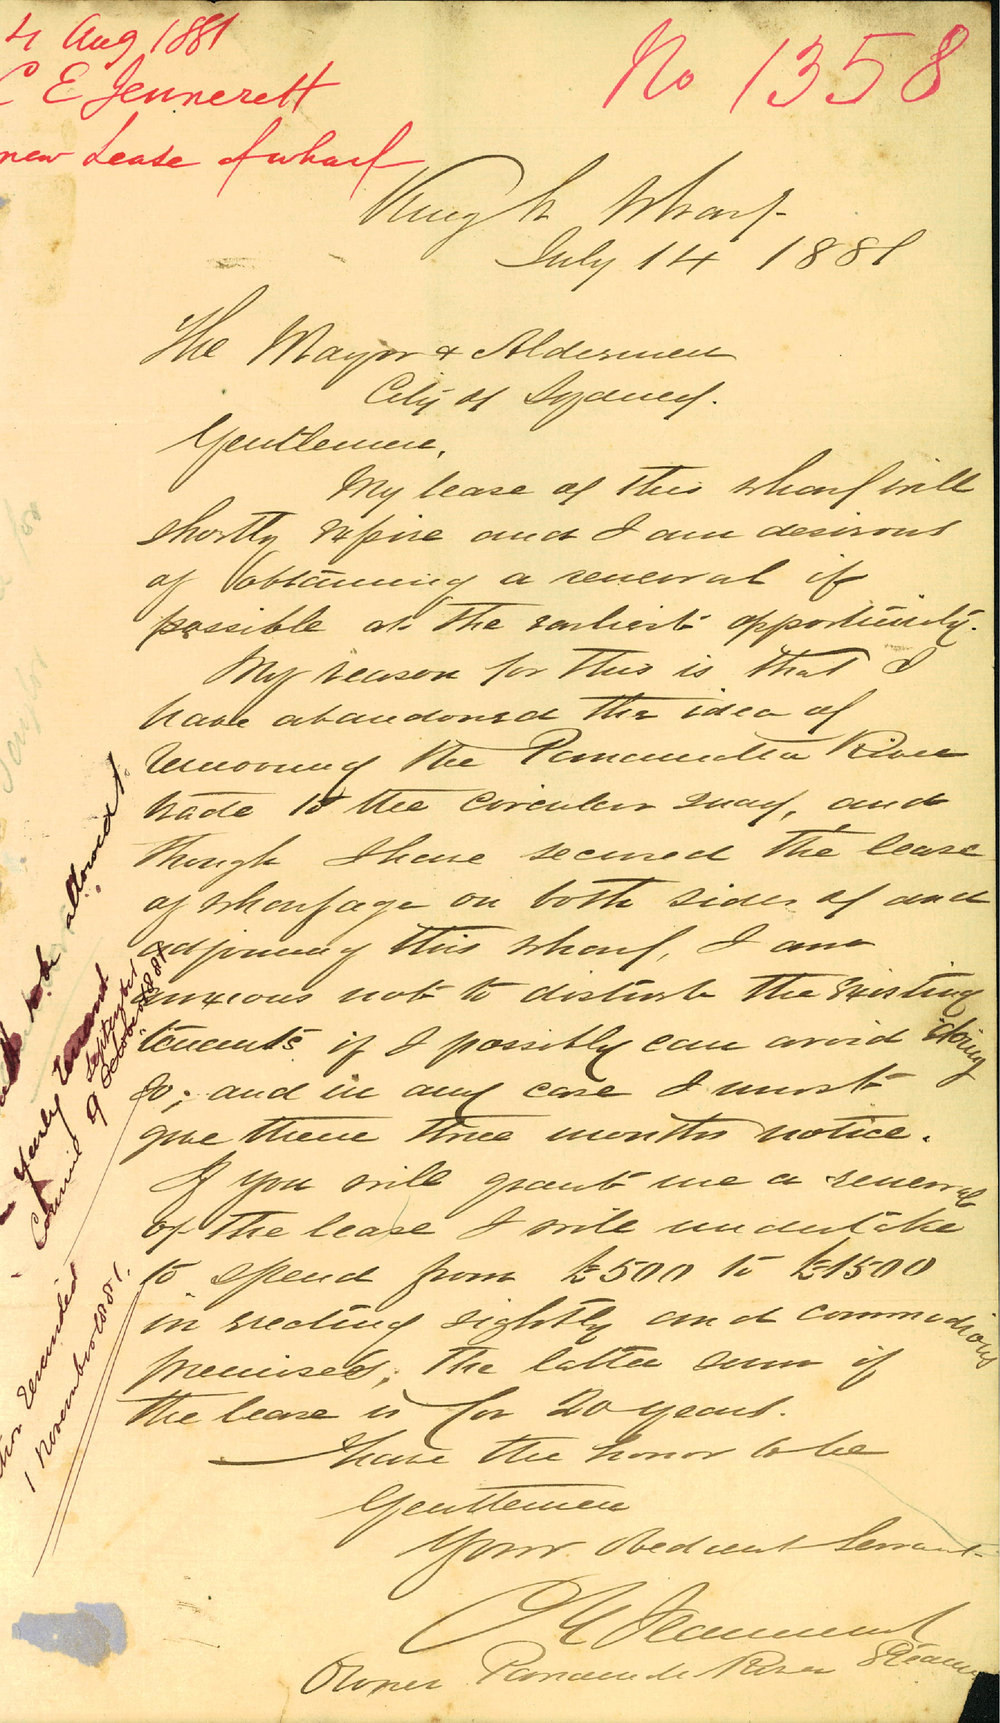 4 Aug 1881
C E Jennerett
new Lease of wharf
No 1358
King St Wharf
July 14 1881
The Mayor & Aldermen
City of Sydney.
Gentlemen,
My lease of this wharf will
shortly expire and I am desirous
of obtaining a renewal if
possible at the earliest opportunity.
My reason for this is that I
have abandoned the idea of
removing the Parramatta River
trade to the Circular Quay, and
though I have secured the lease
of wharfage on both sides of and
adjoining this wharf, I am
anxious not to disturb the existing
tenants if I possibly can avoid doing
so; and in any case I must
give them three months notice.
If you will grant me a renewal
of the lease I will undertake
to spend from £500 to £1500
in erecting sightly and commodious
premises; the latter sum if
the lease is for 20 years.
I have the honor to be
Gentlemen
Your Obedient Servant
C E Jeanneret
Owner Parramatta River Steamers
to be allowed
yearly tenant
Council 9 October 1881
rescinded
1 November 1881.